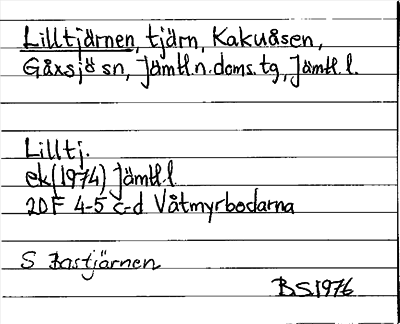 Lilltjärnen, tjärn, Kakuåsen,
Gåxsjö sn, Jämtl.n.doms.tg, Jämtl.l.
Lilltj.
ek(1974) Jämtl.l
20F 4-5 c-d Våtmyrbodarna
S Bastjärnen
BS1976